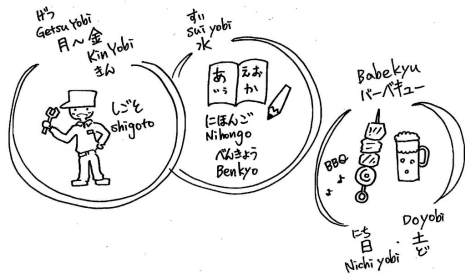 げつ
Getsu Yobi
月〜金
Kin Yobi
きん
しごと
shigoto
すい
sui yobi
水
あ
いぅ
えお
か
にほんご
Nihongo
べんきょう
Benkyo
Babekyu
バーバキュー
BBQ
にち
日・土
Nichi yobi
Doyobi
ど